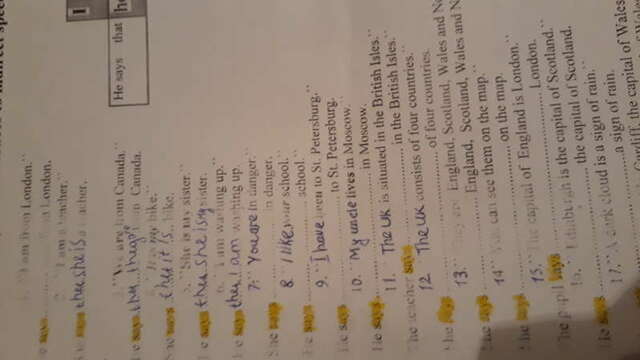 to indirect speech
1. "I am from London."
He says .............. London.
2. "I am a teacher."
He says thes she is a teacher.
I
He says that he
3. "We are from Canada."
He says thes they in Canada.
"It is my bike."
She says thes it is.. bike.
5. "She is my sister."
He says thes She is my sister.
6. "I am washing up."
He says thes I am washing up.
7. "You are in danger."
She says .............. in danger.
8. "I like your school."
He says .............. school.
9. "I have been to St. Petersburg."
He says .............. to St. Petersburg.
10. "My uncle lives in Moscow."
He says .............. in Moscow.
11. "The UK is situated in the British Isles."
The teacher says .............. in the British Isles."
12 "The UK consists of four countries."
She says .............. of four countries.
13. "They are England, Scotland, Wales and
She says .............. England, Scotland, Wales and
14 "You can see them on the map."
She says .............. on the map.
15. "The capital of England is London."
The pupil says .............. London.
16. "Edinburgh is the capital of Scotland."
He says .............. the capital of Scotland.
17. "A dark cloud is a sign of rain."
.............. a sign of rain.
Cardiff, the capital of Wales